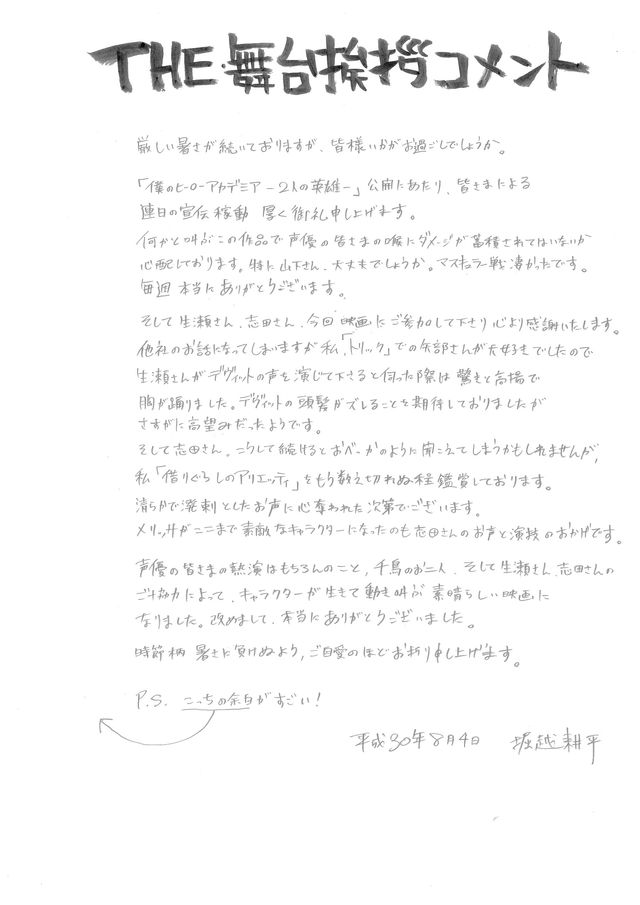 THE・舞台挨拶コメント
厳しい暑さが続いておりますが、皆様いかがお過ごしでしょうか。
「僕のヒーローアカデミア －2人の英雄－」公開にあたり、皆さまによる
連日の宣伝稼動 厚く御礼申し上げます。
何かと叫ぶこの作品で声優の皆さまの喉にダメージが蓄積されてはいないか
心配しております。特に山下さん、大丈夫でしょうか。マスキュラー戦凄かったです。
毎週 本当にありがとうございます。
そして生瀬さん、志田さん、今回 映画にご参加して下さり心より感謝いたします。
他社のお話になってしまいますが私、「トリック」での矢部さんが大好きでしたので
生瀬さんがデヴィットの声を演じて下さると伺った際は驚きと高揚で
胸が踊りました。デヴィットの頭髪がズレることを期待しておりましたが
さすがに高望みだったようです。
そして志田さん。こうして続けるとおべっかのように聞こえてしまうかもしれませんが、
私「借りぐらしのアリエッティ」をもう数え切れぬ程 鑑賞しております。
清らかで溌剌としたお声に心奪われた次第でございます。
メリッサがここまで素敵なキャラクターになったのも志田さんのお声と演技のおかげです。
声優の皆さまの熱演はもちろんのこと、千鳥のお二人、そして生瀬さん、志田さんの
ご協力によって、キャラクターが生きて動き叫ぶ 素晴らしい映画に
なりました。改めまして、本当にありがとうございました。
時節柄 暑さに負けぬよう、ご自愛のほどお祈り申し上げます。
P.S. こっちの余白がすごい！
平成30年8月4日 堀越耕平